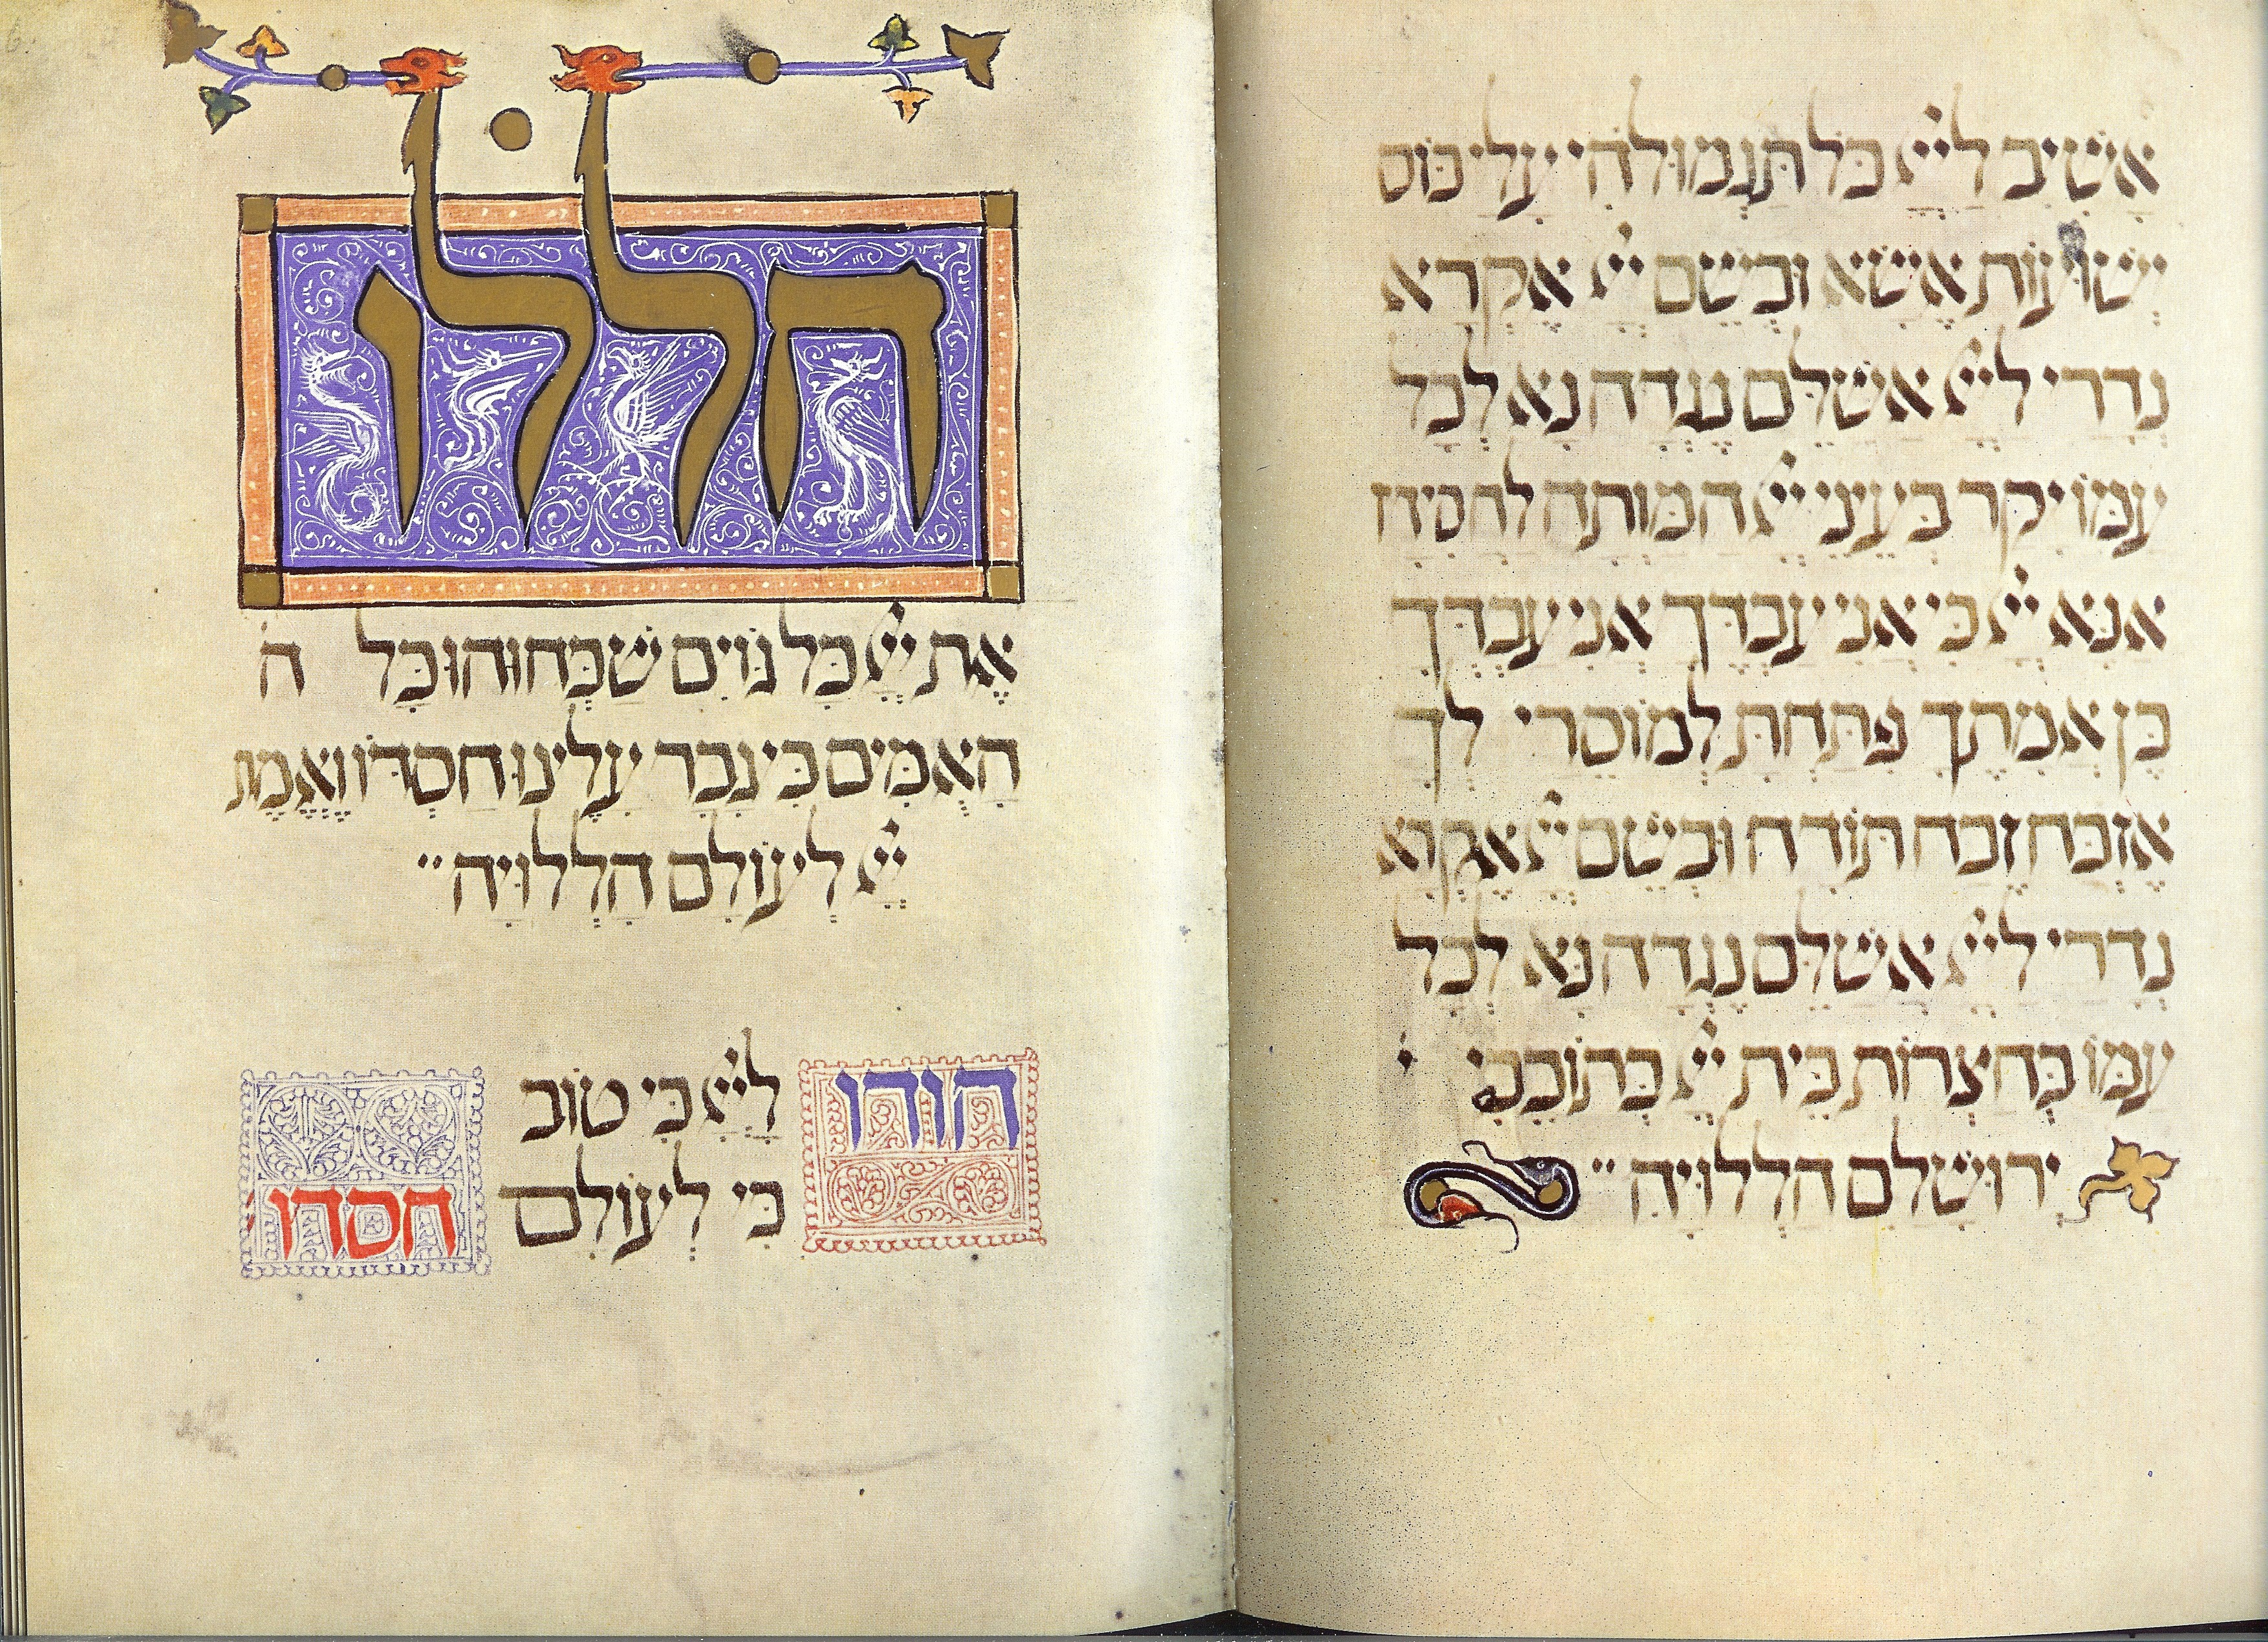 אָשִׁיב לַיְיָ כָּל תַּגְמוּלֹהִי עָלָי כּוֹס
יְשׁוּעוֹת אֶשָּׂא וּבְשֵׁם יְיָ אֶקְרָא
נְדָרַי לַיְיָ אֲשַׁלֵּם נֶגְדָה נָא לְכָל
עַמּוֹ יָקָר בְּעֵינֵי יְיָ הַמָּוְתָה לַחֲסִידָיו
אָנָּא יְיָ כִּי אֲנִי עַבְדֶּךָ אֲנִי עַבְדְּךָ
בֶּן אֲמָתֶךָ פִּתַּחְתָּ לְמוֹסֵרָי לְךָ
אֶזְבַּח זֶבַח תּוֹדָה וּבְשֵׁם יְיָ אֶקְרָא
נְדָרַי לַיְיָ אֲשַׁלֵּם נֶגְדָה נָּא לְכָל
עַמּוֹ בְּחַצְרוֹת בֵּית יְיָ בְּתוֹכֵכִי י
יְרוּשָׁלִַם הַלְלוּיָהּ
הללו
אֶת יְיָ כָּל גּוֹיִם שַׁבְּחוּהוּ כָּל ה
הָאֻמִּים כִּי גָבַר עָלֵינוּ חַסְדּוֹ וֶאֱמֶת
יְיָ לְעוֹלָם הַלְלוּיָהּ
הודו לַיְיָ כִּי טוֹב
כִּי לְעוֹלָם חסדו